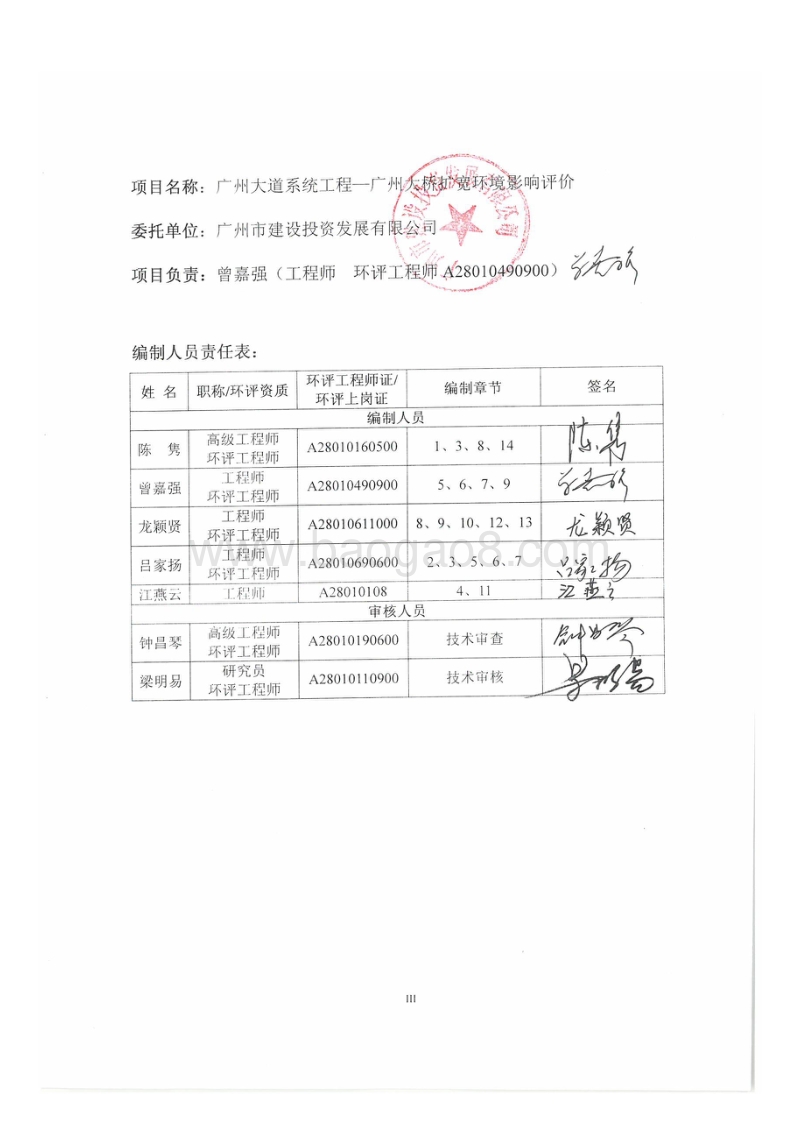 项目名称：广州大道系统工程—广州大桥扩宽环境影响评价
委托单位：广州市建设投资发展有限公司
项目负责：曾嘉强（工程师 环评工程师 A28010490900）
编制人员责任表：
姓 名 职称/环评资质 环评工程师证/环评上岗证 编制章节 签名
编制人员
陈 隽 高级工程师 环评工程师 A28010160500 1、3、8、14 陈隽
曾嘉强 工程师 环评工程师 A28010490900 5、6、7、9
龙颖贤 工程师 环评工程师 A28010611000 8、9、10、12、13 龙颖贤
吕家扬 工程师 环评工程师 A28010690600 2、3、5、6、7 吕家扬
江燕云 工程师 A28010108 4、11 江燕云
审核人员
钟昌琴 高级工程师 环评工程师 A28010190600 技术审查
梁明易 研究员 环评工程师 A28010110900 技术审核
www.baogao8.com
III